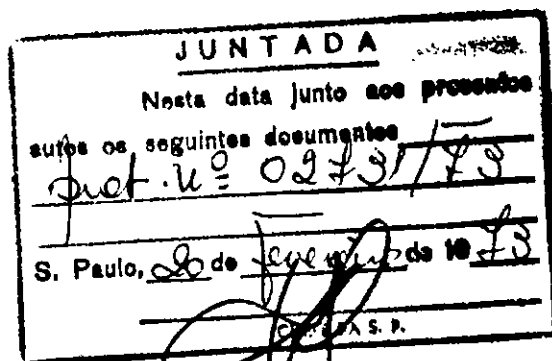 JUNTADA
Nesta data junto aos presentes
autos os seguintes documentos
prot. nº 02731/73
S. Paulo, 20 de fevereiro de 1973
S. P.